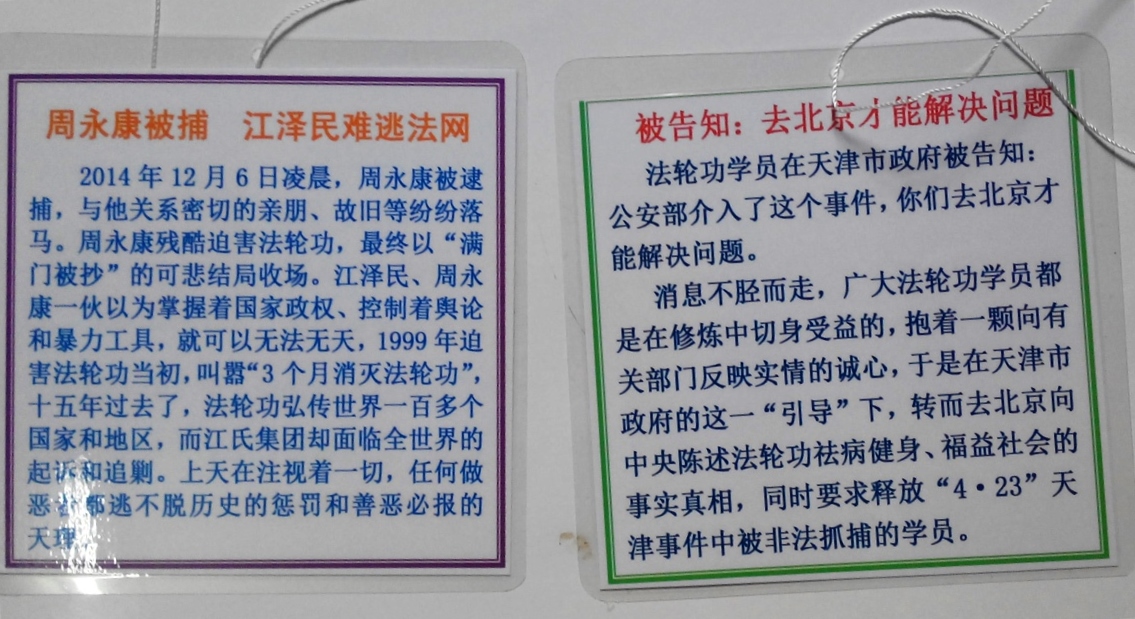 周永康被捕　江泽民难逃法网
2014年12月6日凌晨，周永康被逮
捕，与他关系密切的亲朋、故旧等纷纷落
马。周永康残酷迫害法轮功，最终以“满
门被抄”的可悲结局收场。江泽民、周永
康一伙以为掌握着国家政权、控制着舆论
和暴力工具，就可以无法无天，1999年迫
害法轮功当初，叫嚣“3个月消灭法轮功”，
十五年过去了，法轮功弘传世界一百多个
国家和地区，而江氏集团却面临全世界的
起诉和追剿。上天在注视着一切，任何做
恶者都逃不脱历史的惩罚和善恶必报的
天理
被告知：去北京才能解决问题
法轮功学员在天津市政府被告知：
公安部介入了这个事件，你们去北京才
能解决问题。
消息不胫而走，广大法轮功学员都
是在修炼中切身受益的，抱着一颗向有
关部门反映实情的诚心，于是在天津市
政府的这一“引导”下，转而去北京向
中央陈述法轮功祛病健身、福益社会的
事实真相，同时要求释放“4·23”天
津事件中被非法抓捕的学员。